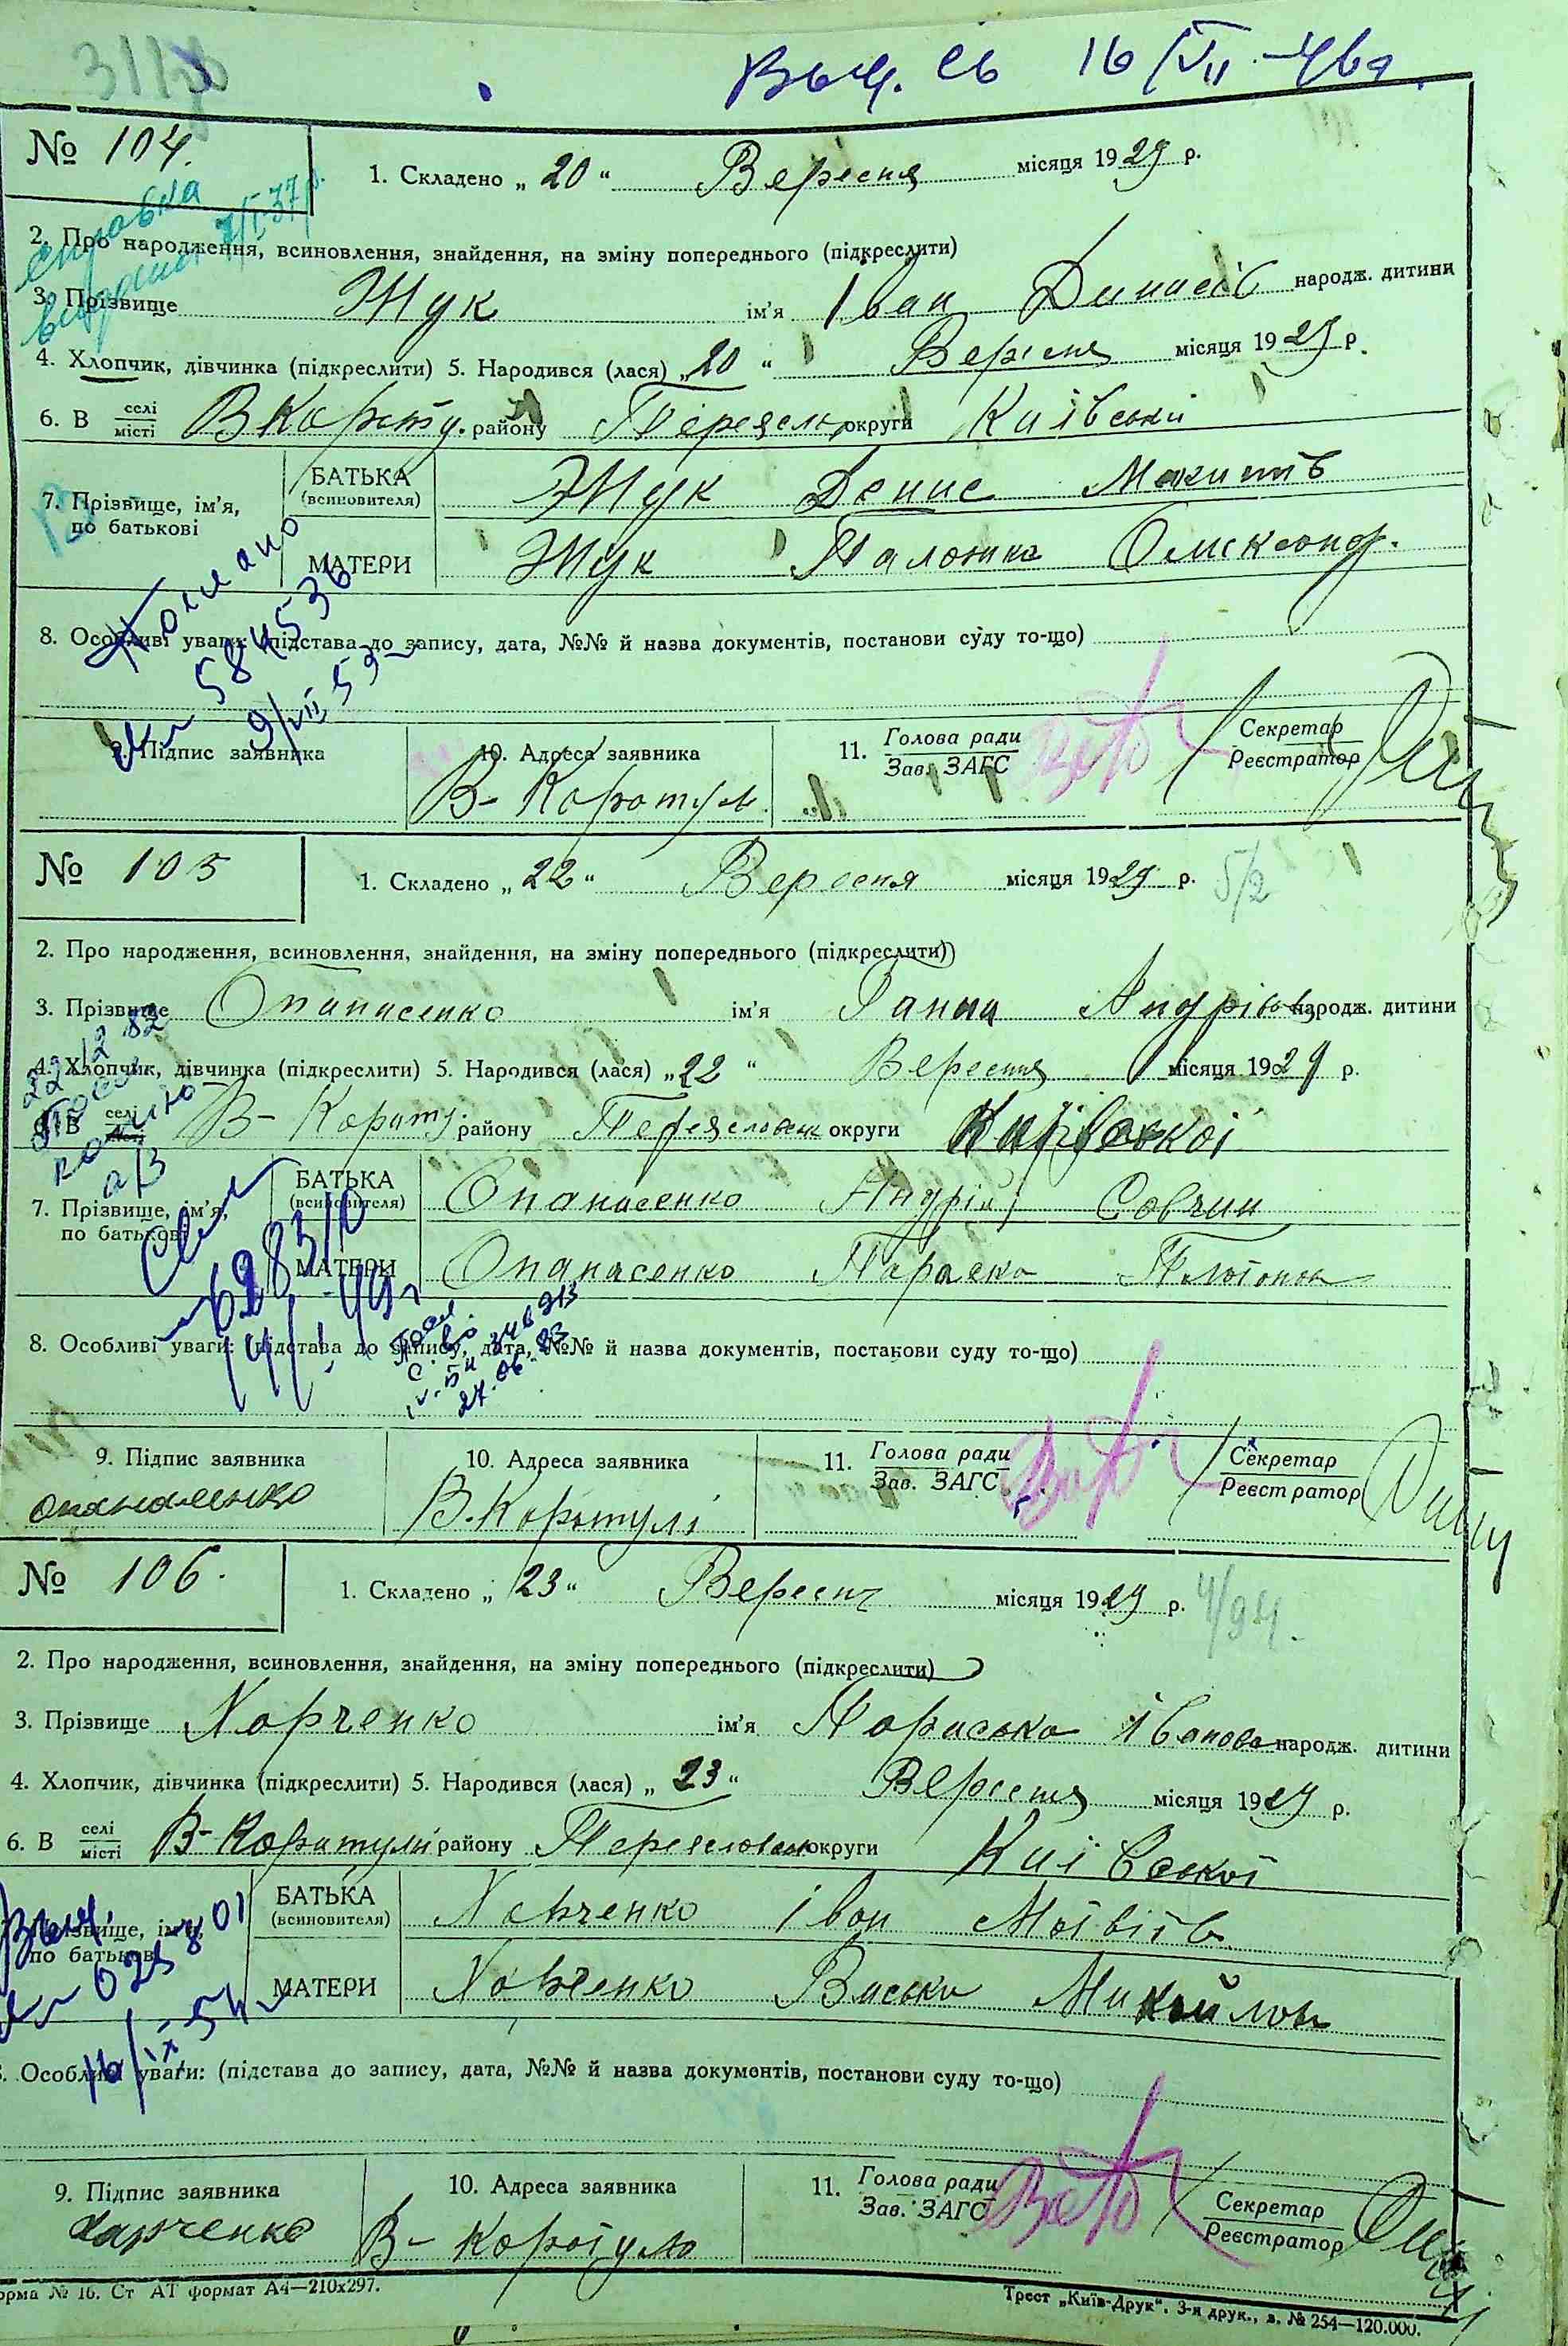 Выд. св 16/VII-46 г.
№ 104.
1. Складено „ 20 “ Вересня місяця 1929 р.
справка видана 7/I-37 р.
2. Про народження, всиновлення, знайдення, на зміну попереднього (підкреслити)
3. Прізвище Жук ім'я Іван Денисів народж. дитини
4. Хлопчик, дівчинка (підкреслити) 5. Народився (лася) „ 20 “ Вересня місяця 1929 р.
6. В селі/місті В Карату. району Переясл. округи Київській
7. Прізвище, ім'я, по батькові
БАТЬКА (всиновителя) Жук Денис Микитів
МАТЕРИ Жук Палажка Олександ.
8. Особливі уваги: (підстава до запису, дата, №№ й назва документів, постанови суду то-що)
584536
9/VII 53
9. Підпис заявника
10. Адреса заявника
11. Голова ради
Зав. ЗАГС
Секретар
Реєстратор
В- Каратул.
№ 105
1. Складено „ 22 “ Вересня місяця 1929 р. 5/2
2. Про народження, всиновлення, знайдення, на зміну попереднього (підкреслити)
3. Прізвище Опанасенко ім'я Ганна Андріїв народж. дитини
22 12 82
4. Хлопчик, дівчинка (підкреслити) 5. Народився (лася) „ 22 “ Вересня місяця 1929 р.
6. В селі/місті В- Карату. району Переяславськ округи Київської
7. Прізвище, ім'я, по батькові
БАТЬКА (всиновителя) Опанасенко Андрій Совчин
МАТЕРИ Опанасенко Параска Платонов
8. Особливі уваги: (підстава до запису, дата, №№ й назва документів, постанови суду то-що)
27.06.83
9. Підпис заявника
10. Адреса заявника
11. Голова ради
Зав. ЗАГС
Секретар
Реєстратор
Опанасенко
В. Каратулі
№ 106.
1. Складено „ 23 “ Вересня місяця 1929 р. 4/94.
2. Про народження, всиновлення, знайдення, на зміну попереднього (підкреслити)
3. Прізвище Харченко ім'я Параска Іванова народж. дитини
4. Хлопчик, дівчинка (підкреслити) 5. Народився (лася) „ 23 “ Вересня місяця 1929 р.
6. В селі/місті В- Каратулі району Переяславськ округи Київської
7. Прізвище, ім'я, по батькові
БАТЬКА (всиновителя) Харченко Іван Матвіїв
МАТЕРИ Харченко Васька Михайлов
16/IX 54
8. Особливі уваги: (підстава до запису, дата, №№ й назва документів, постанови суду то-що)
9. Підпис заявника
10. Адреса заявника
11. Голова ради
Зав. ЗАГС
Секретар
Реєстратор
Харченко
В- Каратулю
орма № 16. Ст АТ формат А4—210x297.
Трест „Київ-Друк“. 3-я друк., з. № 254—120.000.